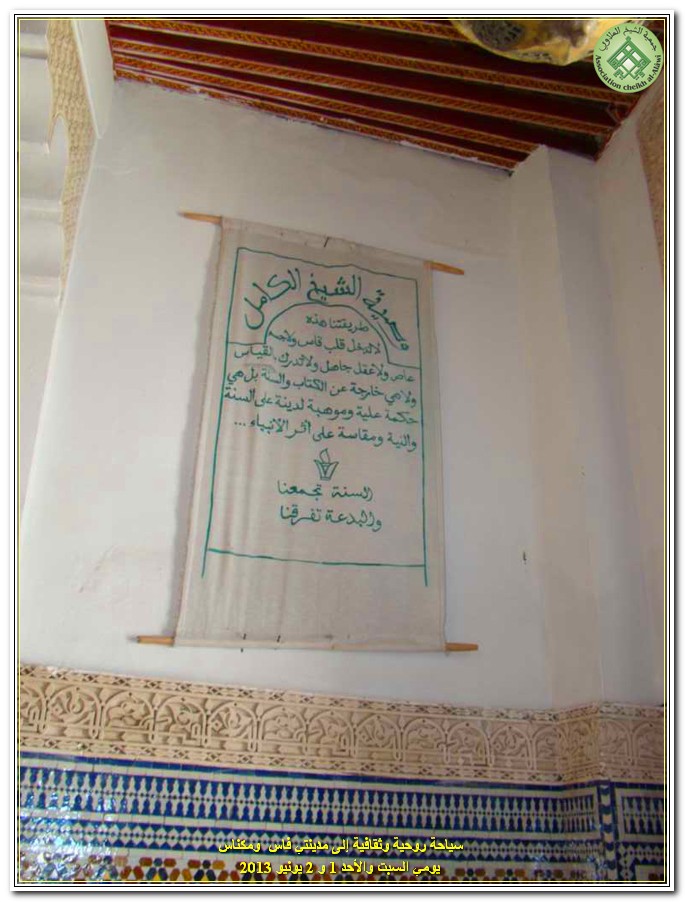 جمعية الشيخ العلاوي
Association cheikh al-Alawi
وصية الشيخ الكامل
طريقتنا هذه
لا تدخل قلب قاس ولا جسم
عاص ولا عقل جاهل ولا تدرك بالقياس
ولا هي خارجة عن الكتاب والسنة بل هي
حكمة علية وموهبة لدينة على السنة
والنية ومقاسة على أثر الأنبياء ...
السنة تجمعنا
والبدعة تفرقنا
سياحة روحية وثقافية إلى مدينتي فاس ومكناس
يومي السبت والأحد 1 و 2 يونيو 2013